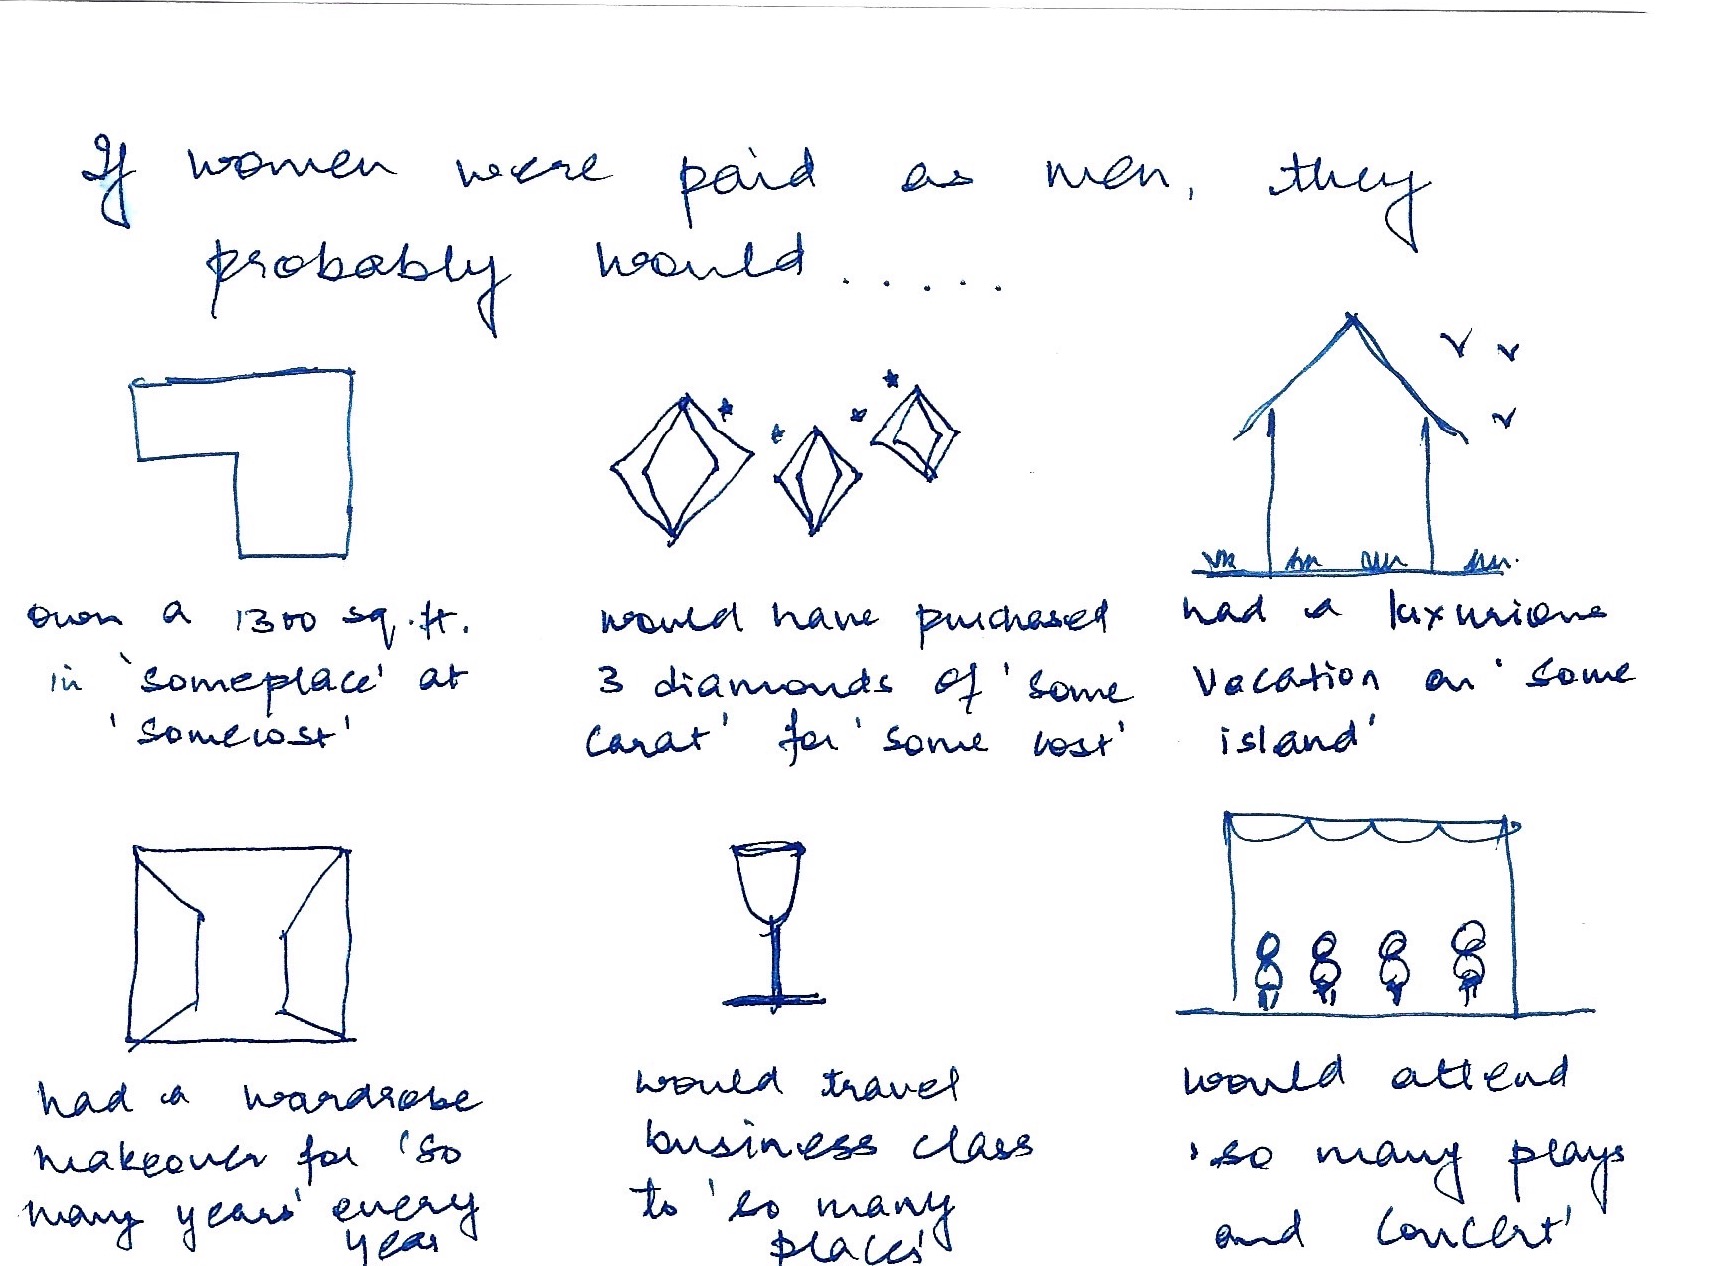 If women were paid as men, they
probably would.....
own a 1300 sq.ft.
in 'someplace' at
'somecost'
would have purchased
3 diamonds of 'some
carat' for 'some cost'
had a luxurious
vacation on 'some
island'
had a wardrobe
makeover for 'so
many years' every
year
would travel
business class
to 'so many
places'
would attend
'so many plays
and concert'